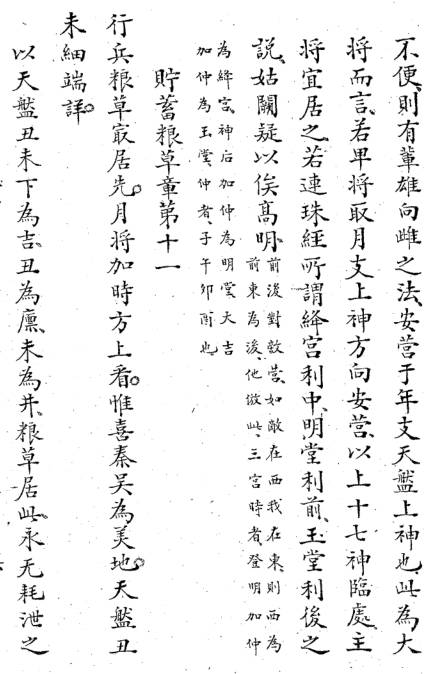 不便、則有輩雄向雌之法、安營于年支天盤上神也、此為大
將而言、若卑將取月支上神方向安營、以上十七神臨處、主
將宜居之、若連珠經所謂絳宮利中、明堂利前、玉堂利後之
說、姑闕疑以俟高明、前後對敵營、如敵在西我在東、則西為
前東為後、他倣此、三宮時者、登明加仲
為絳宮、神后加仲為明堂、大吉
加仲為玉堂、仲者子午卯酉也、
貯蓄粮草章第十一
行兵粮草㝡居先。月將加時方上看。惟喜秦吳為美地。天盤丑
未細端詳。
以天盤丑未下為吉、丑為廪、未為井、粮草居此、永无耗泄之